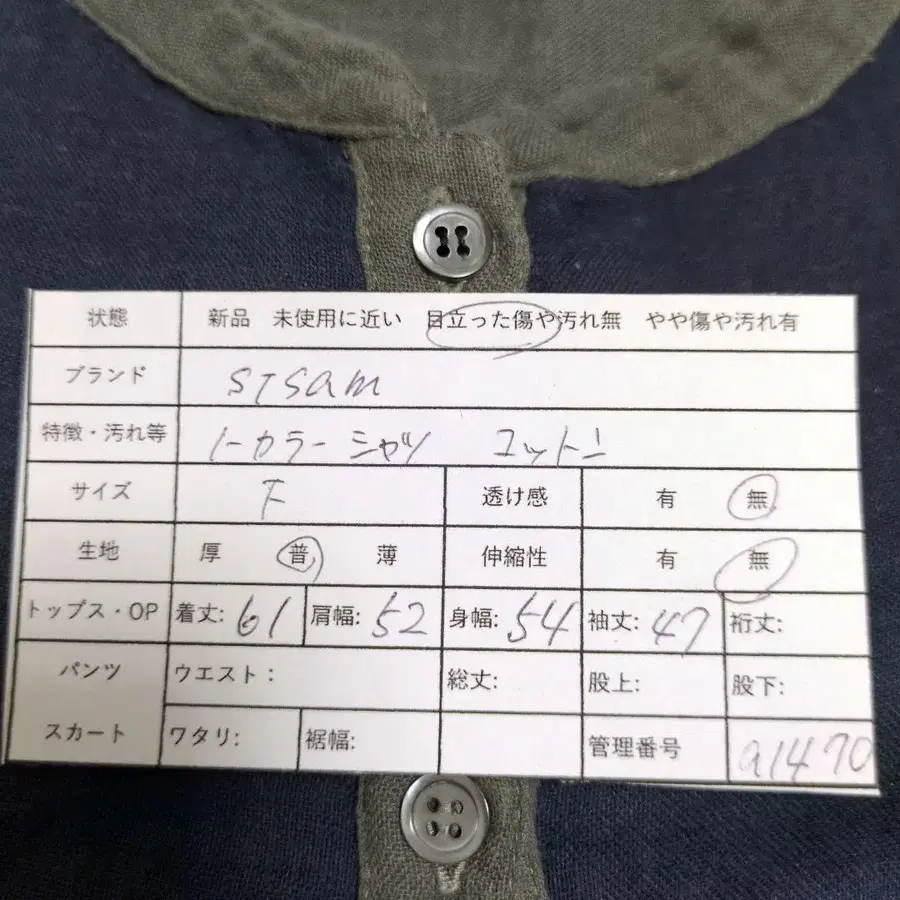 状態 新品 未使用に近い 目立った傷や汚れ無 やや傷や汚れ有
ブランド SISam
特徴・汚れ等 ノーカラーシャツ コットン
サイズ F 透け感 有 無
生地 厚 普 薄 伸縮性 有 無
トップス・OP 着丈: 61 肩幅: 52 身幅: 54 袖丈: 47 裄丈:
パンツ ウエスト: 総丈: 股上: 股下:
スカート ワタリ: 裾幅: 管理番号 a1470